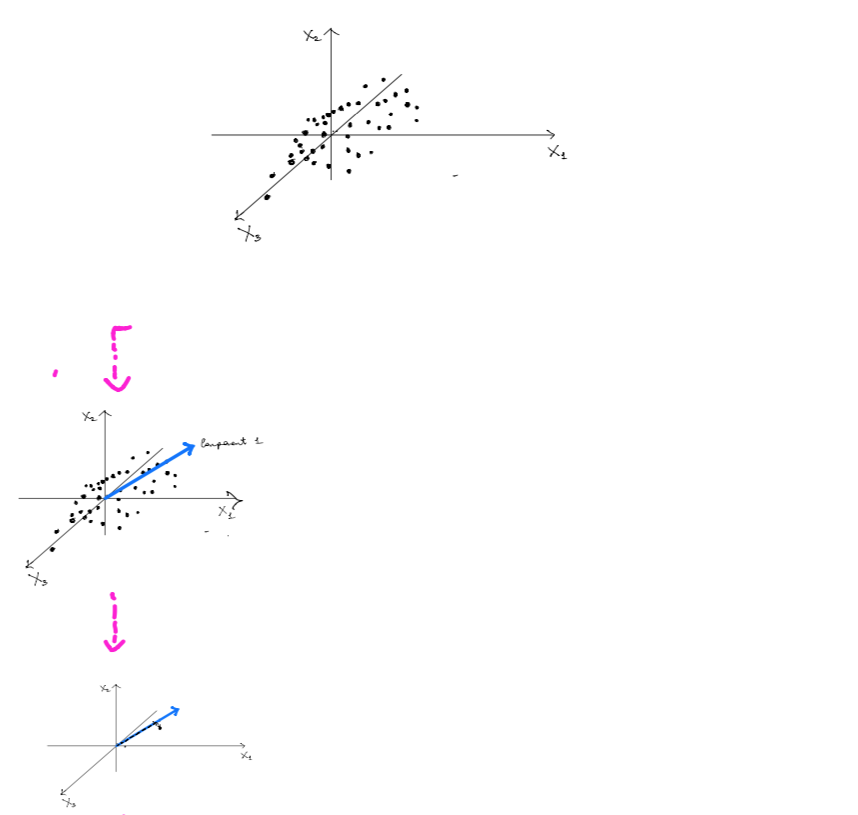 X₂
X₁
X₃
X₂
Component 1
X₁
X₃
X₂
X₁
X₃